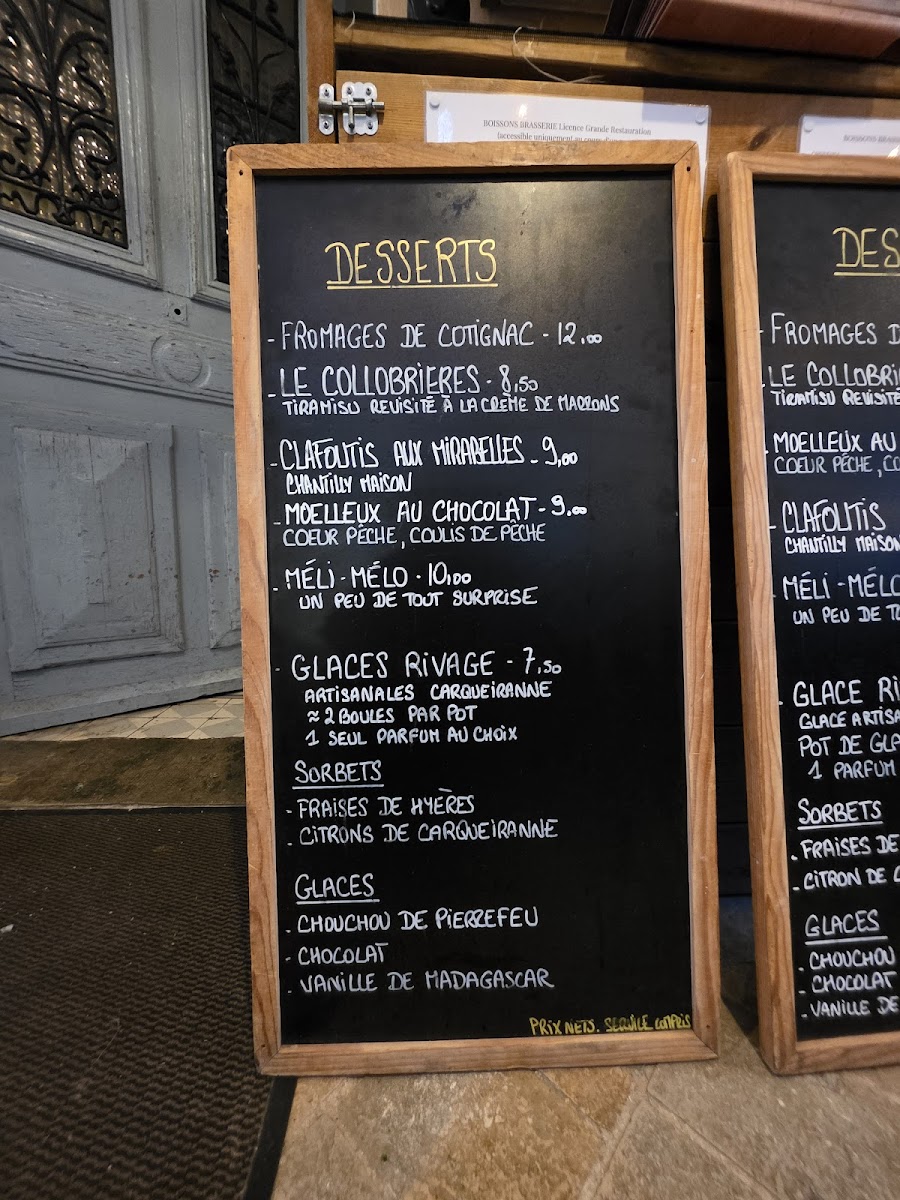 BOISSONS BRASSERIE Licence Grande Restauration
(accessible uniquement au
BOISSONS
DESSERTS
- FROMAGES DE COTIGNAC - 12,00
- LE COLLOBRIERES - 8,50
TIRAMISU REVISITÉ À LA CRÈME DE MARRONS
- CLAFOUTIS AUX MIRABELLES - 9,00
CHANTILLY MAISON
- MOELLEUX AU CHOCOLAT - 9,00
COEUR PÊCHE, COULIS DE PÊCHE
- MÉLI-MÉLO - 10,00
UN PEU DE TOUT SURPRISE
- GLACES RIVAGE - 7,50
ARTISANALES CARQUEIRANNE
≈ 2 BOULES PAR POT
1 SEUL PARFUM AU CHOIX
SORBETS
- FRAISES DE HYÈRES
- CITRONS DE CARQUEIRANNE
GLACES
- CHOUCHOU DE PIERREFEU
- CHOCOLAT
- VANILLE DE MADAGASCAR
PRIX NETS. SERVICE COMPRIS
DES
- FROMAGES D
- LE COLLOBRI
TIRAMISU REVISITÉ
- MOELLEUX AU
COEUR PÊCHE, CO
- CLAFOUTIS
CHANTILLY MAISON
- MÉLI-MÉLO
UN PEU DE TO
- GLACE RI
GLACE ARTISA
POT DE GLA
1 PARFUM
SORBETS
- FRAISES DE
- CITRON DE C
GLACES
- CHOUCHOU
- CHOCOLAT
- VANILLE DE